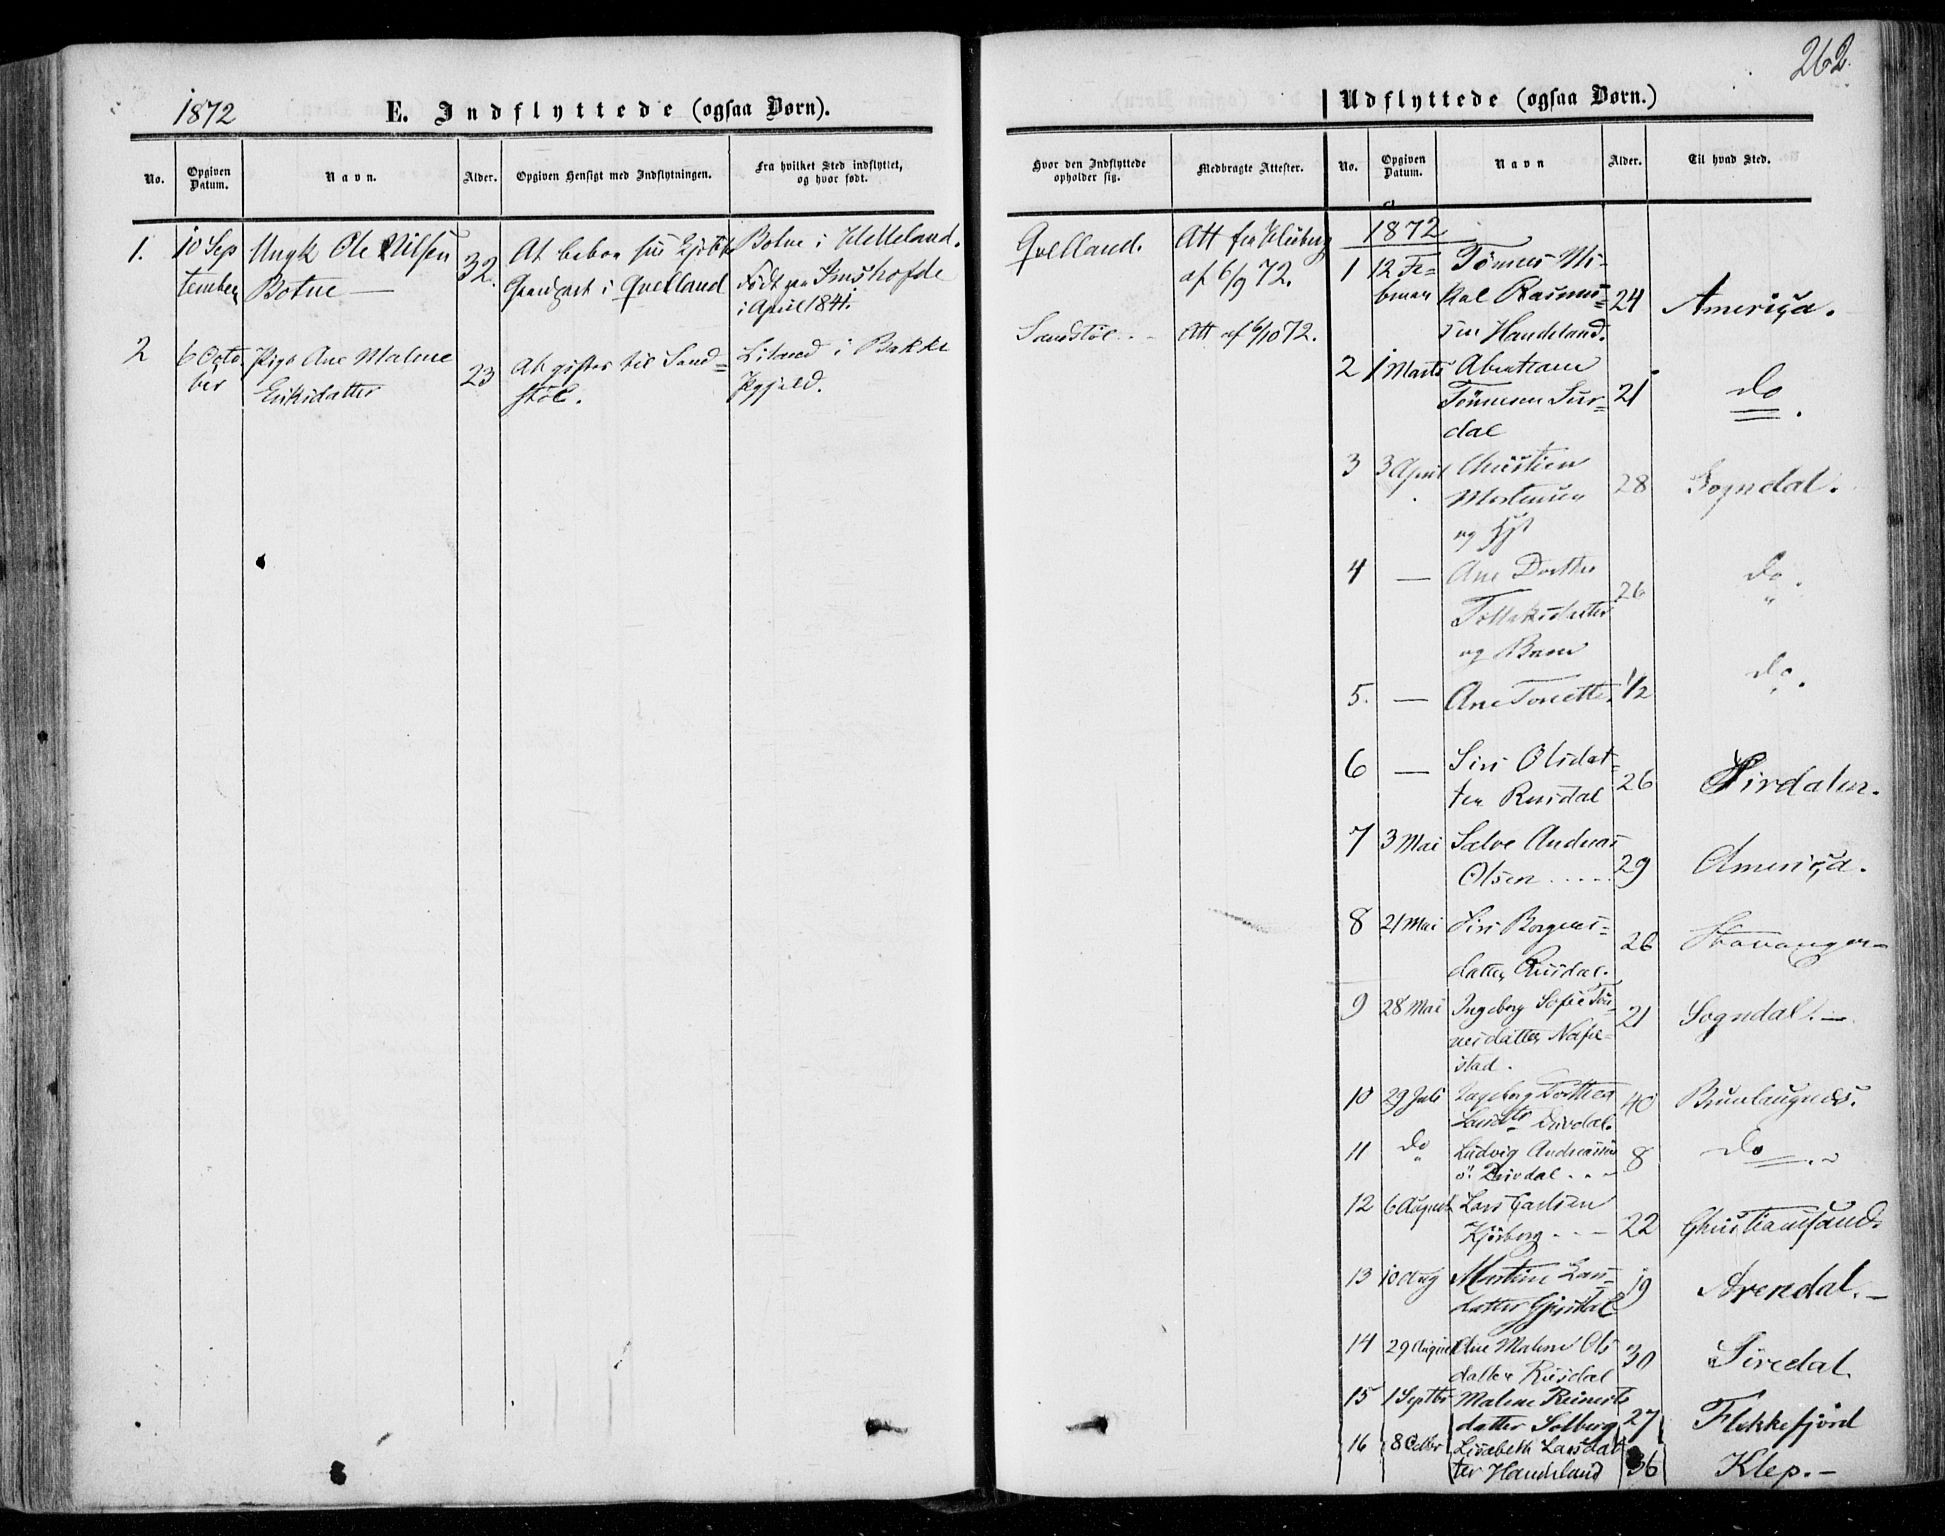 1872
E. Indflyttede (ogsaa Børn).
No.
Opgiven Datum.
Navn.
Alder.
Opgiven Hensigt med Indflytningen.
Fra hvilket Sted indflyttet,
og hvor født.
1.
10 Sep
tember
Ungk Ole Nilsen
Botne —
32.
At beboe sin
i Qvelland
Botne i Helleland.
Født paa
i April 1841.
2
6 Octo
ber
Pige Ane Malene
Eriksdatter
23
At giftes til Sand=
støl.
Liland i Bakke
Pgjeld.
262.
Udflyttede (ogsaa Børn.)
Hvor den Indflyttede
opholder sig.
Medbragte Attester.
No.
Opgiven
Datum.
Navn
Alder.
Til hvad Sted.
Qvelland.
Att fra
af 6/9 72.
Sandstöl
Att af 6/10 72.
1872
1
12 Fe=
bruar
Tönnes Mi-
kal Rasmus=
sen Handeland.
24
America.
2
1 Marts
Abraham
Tönnesen Sur=
dal
21
do
3
3 April
Christian
Mortensen
og
28
Sogndal.
4
—
Ane Dorthe
Tollaksdatter
og Barn
26
do
5.
—
Ane Tonette
1/2
do.
6
—
Siri Olsdat=
ter Rusdal
26
Sirdalen.
7
3 Mai
Salve Andreas
Olsen
29
America.
8
21 Mai
Siri
datter Rusdal.
26
Stavanger
9
28 Mai
Ingeborg Sofie Tön
nesdatter
stad.
21
Sogndal. —
10
29 Juli
Ingeborg Dorthea
40
Brunlaugnæs.
11
do
Ludvig Andreassen
8
do
12
6 August
Lars
22
Christianssand.
13
10 Aug
Martine Lars=
datter
19
Arendal. —
14
29 August
Ane Malene Ols
datter Rusdal
30
Siredal.
15
1 Septbr
Malene Reinerts
datter Solberg
27
Flekkefjord
16
8 Octbr
Lisabeth Larsdat
ter Handeland
36
Klep. —